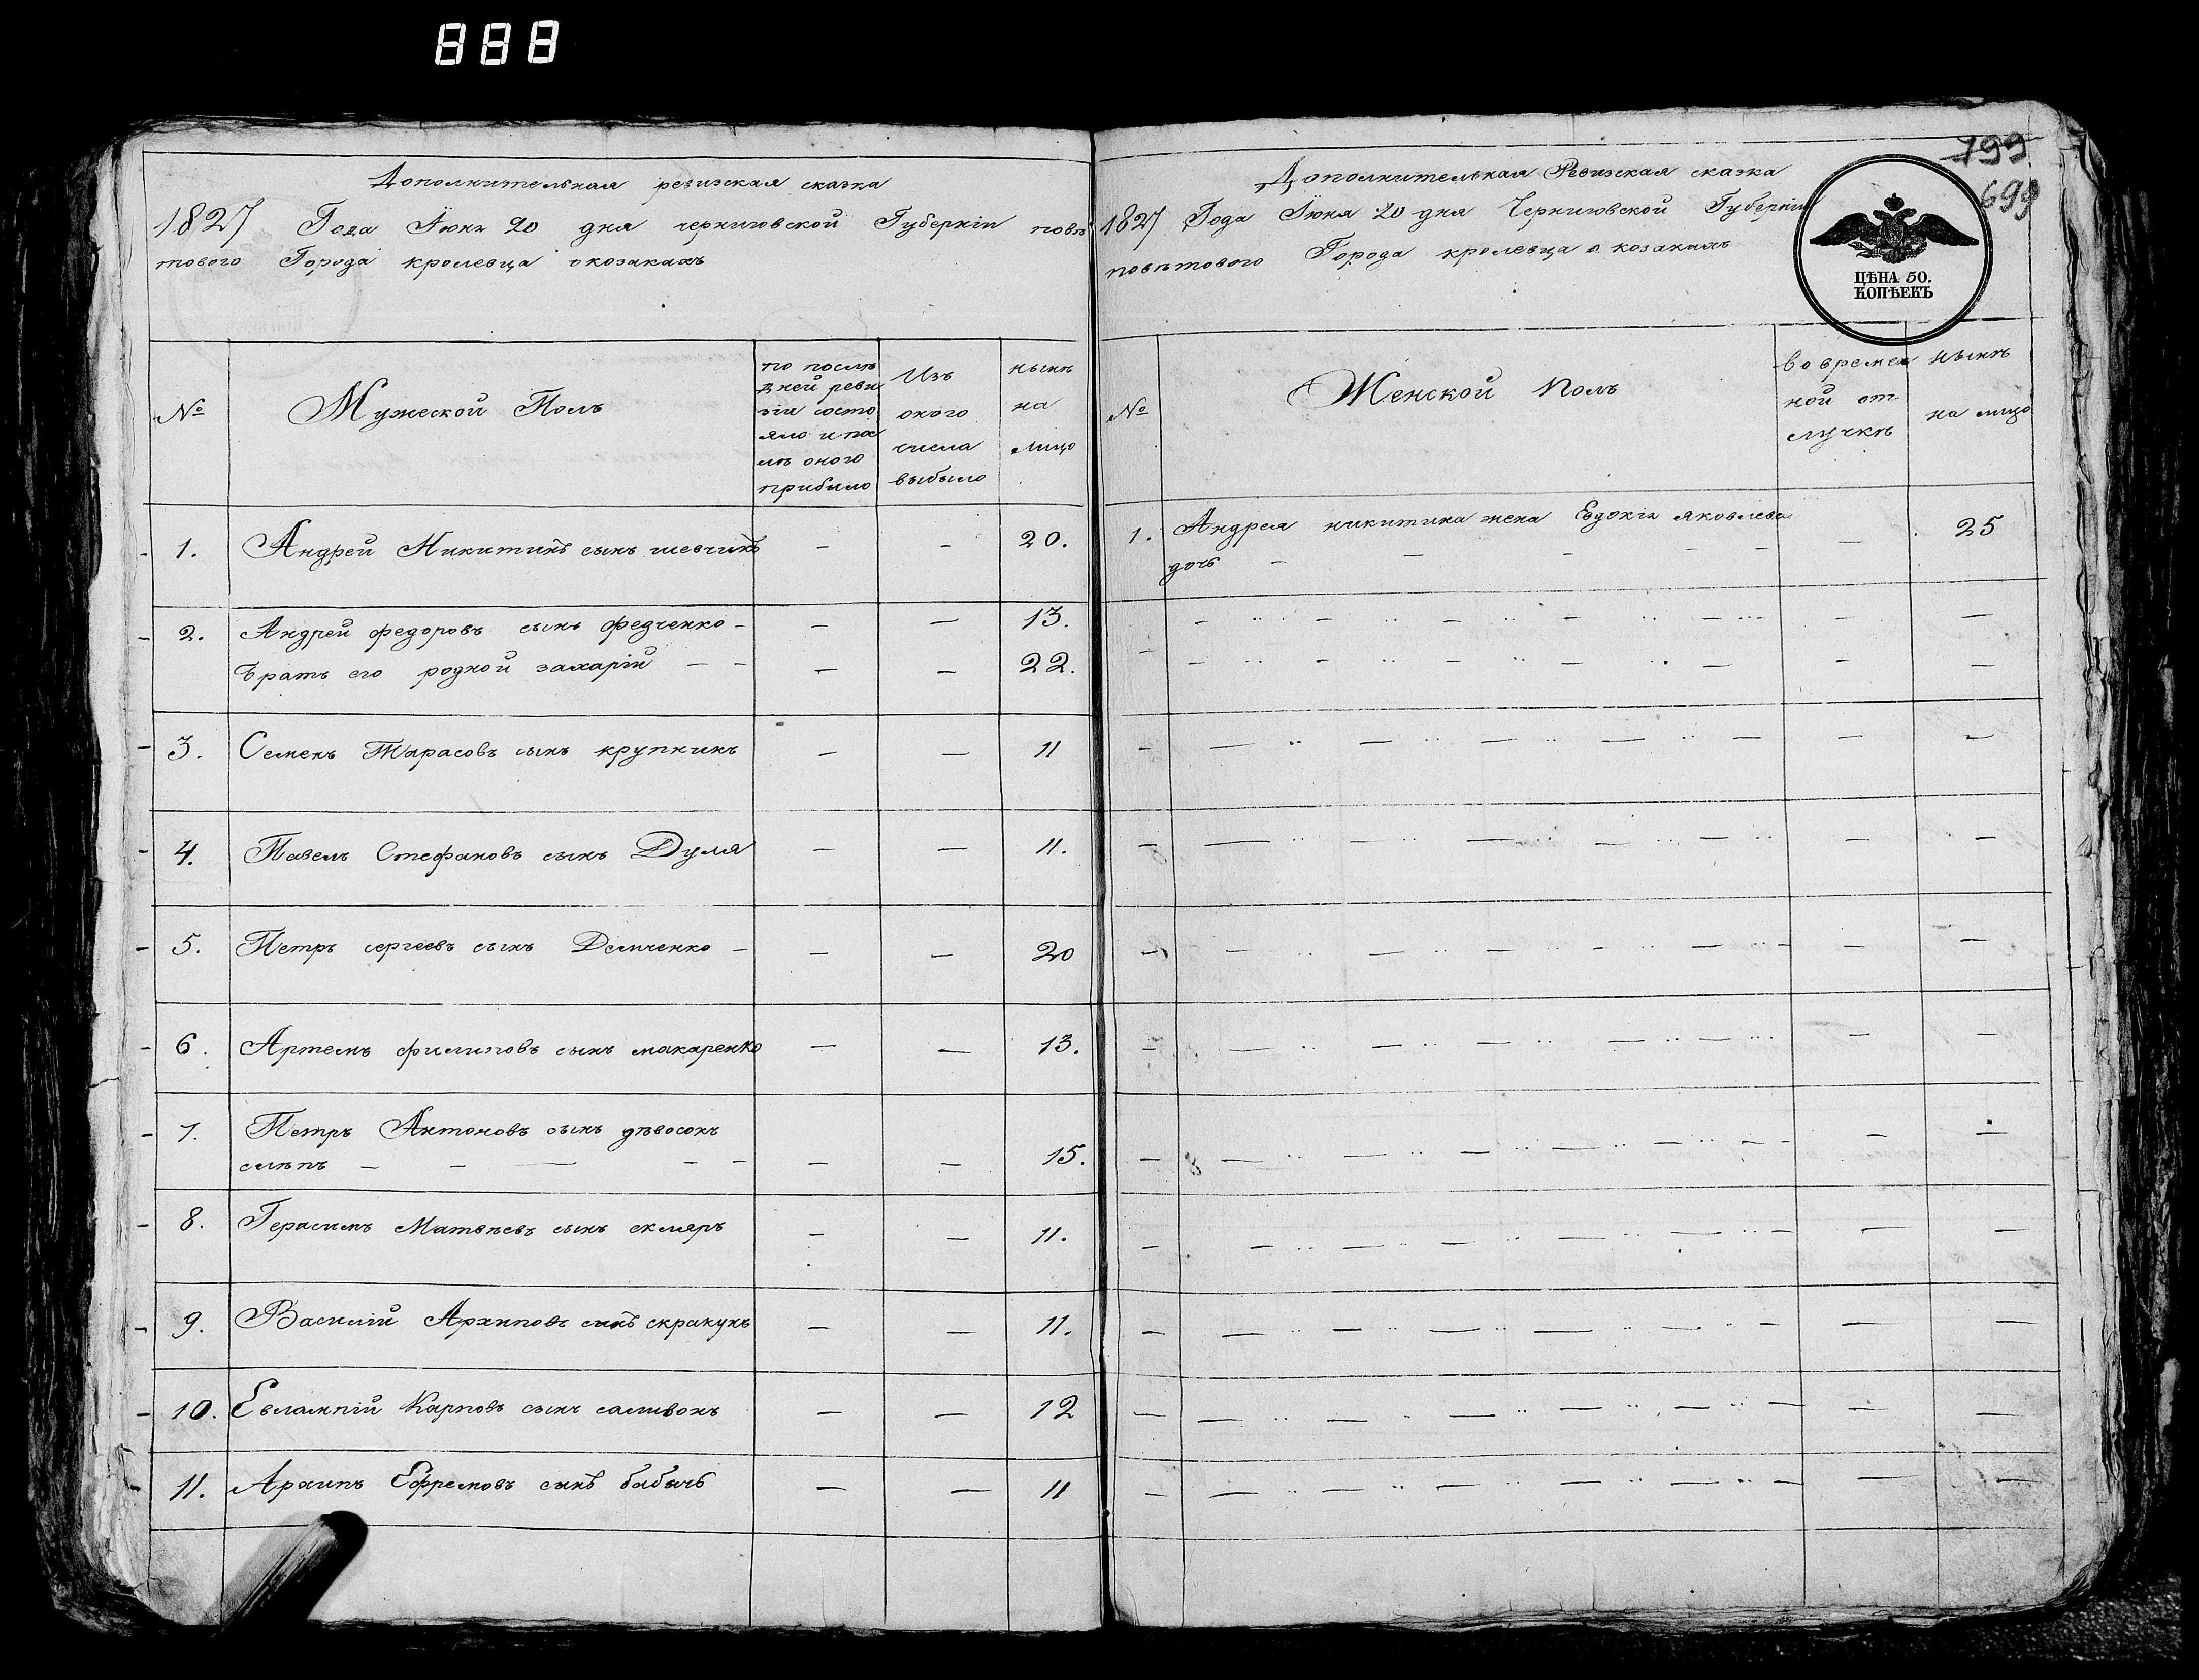 888
Дополнительная ревизская сказка
1827 Года Июня 20 дня черниговской Губерніи повѣ
тового Города кролевца о козакахъ
№
Мужеской Полъ
по послѣ
дней реви
зіи состо
яло и по
лѣ оного
прибыло
Изъ
оного
числа
выбыло
нынѣ
на
лицо
1. Андрей Никитинъ сынъ шевчинъ — — 20.
2. Андрей федоровъ сынъ федченко — — — 13.
Братъ его родной захарій — — — — 22.
3. Семенъ Тарасовъ сынъ крупникъ — — 11
4. Павелъ Стефановъ сынъ Дуля — — 11.
5. Петръ сергеевъ сынъ Демченко — — — 20
6. Артемъ филиповъ сынъ макаренко — — 13.
7. Петръ Антоновъ сынъ дѣвосокъ
слѣпъ — — — — — — — 15.
8. Герасимъ Матвѣевъ сынъ скляръ — — 11.
9. Василій Архиповъ сынъ скракунъ — — 11.
10. Евлампій Карповъ сынъ саливонъ — — 12
11. Архипъ Ефремовъ сынъ бабичь — — 11
799
699
Дополнительная Ревизская сказка
1827 Года Июня 20 дня Черниговской Губерніи
повѣтового Города кролевца о козакахъ
ЦѢНА 50.
КОПѢЕКЪ
№
Женской Полъ
во времен
ной от
лучкѣ
нынѣ
на лицо
1. Андрея никитина жена Евдокія яковлева — 25
дочь — — — — —